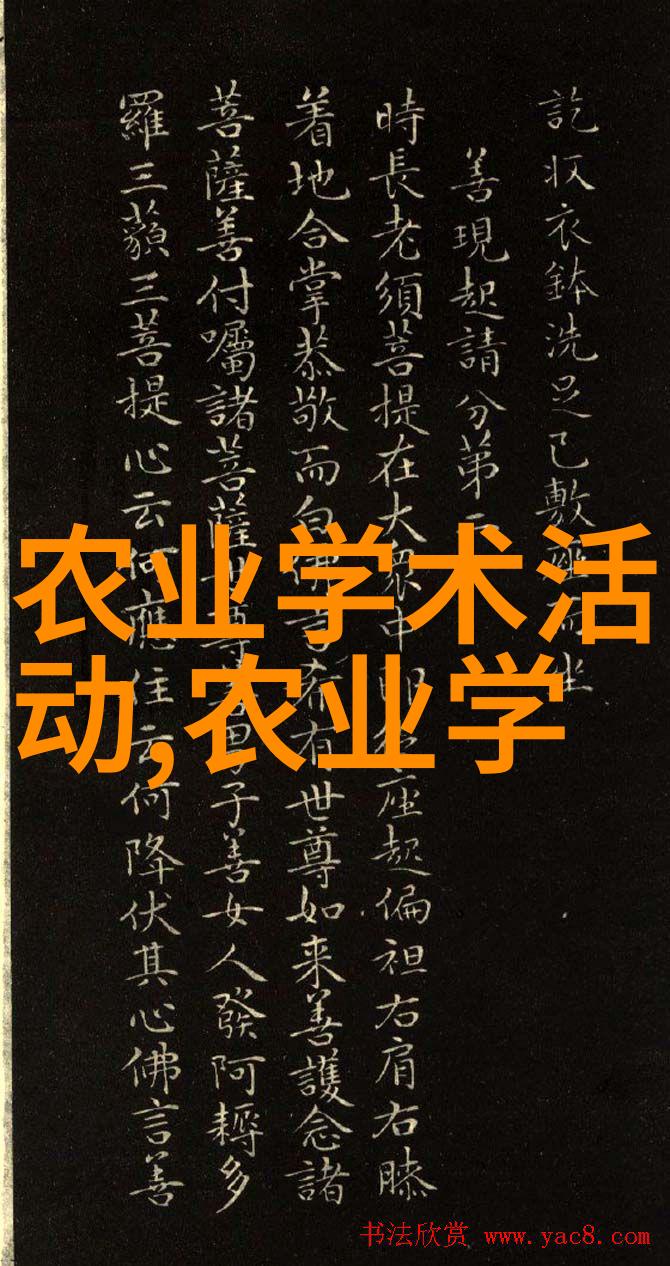 訖收衣鉢洗足已敷座而坐
善現起請分第二
時長老須菩提在大衆中即座起偏袒右肩右膝
着地合掌恭敬而白佛言希有世尊如来善護念諸
菩薩善付囑諸菩薩世尊善男子善女人發阿耨多
羅三藐三菩提心云何應住云何降伏其心佛言善
农业学术活
动,农业学
书法欣赏 www.yac8.com